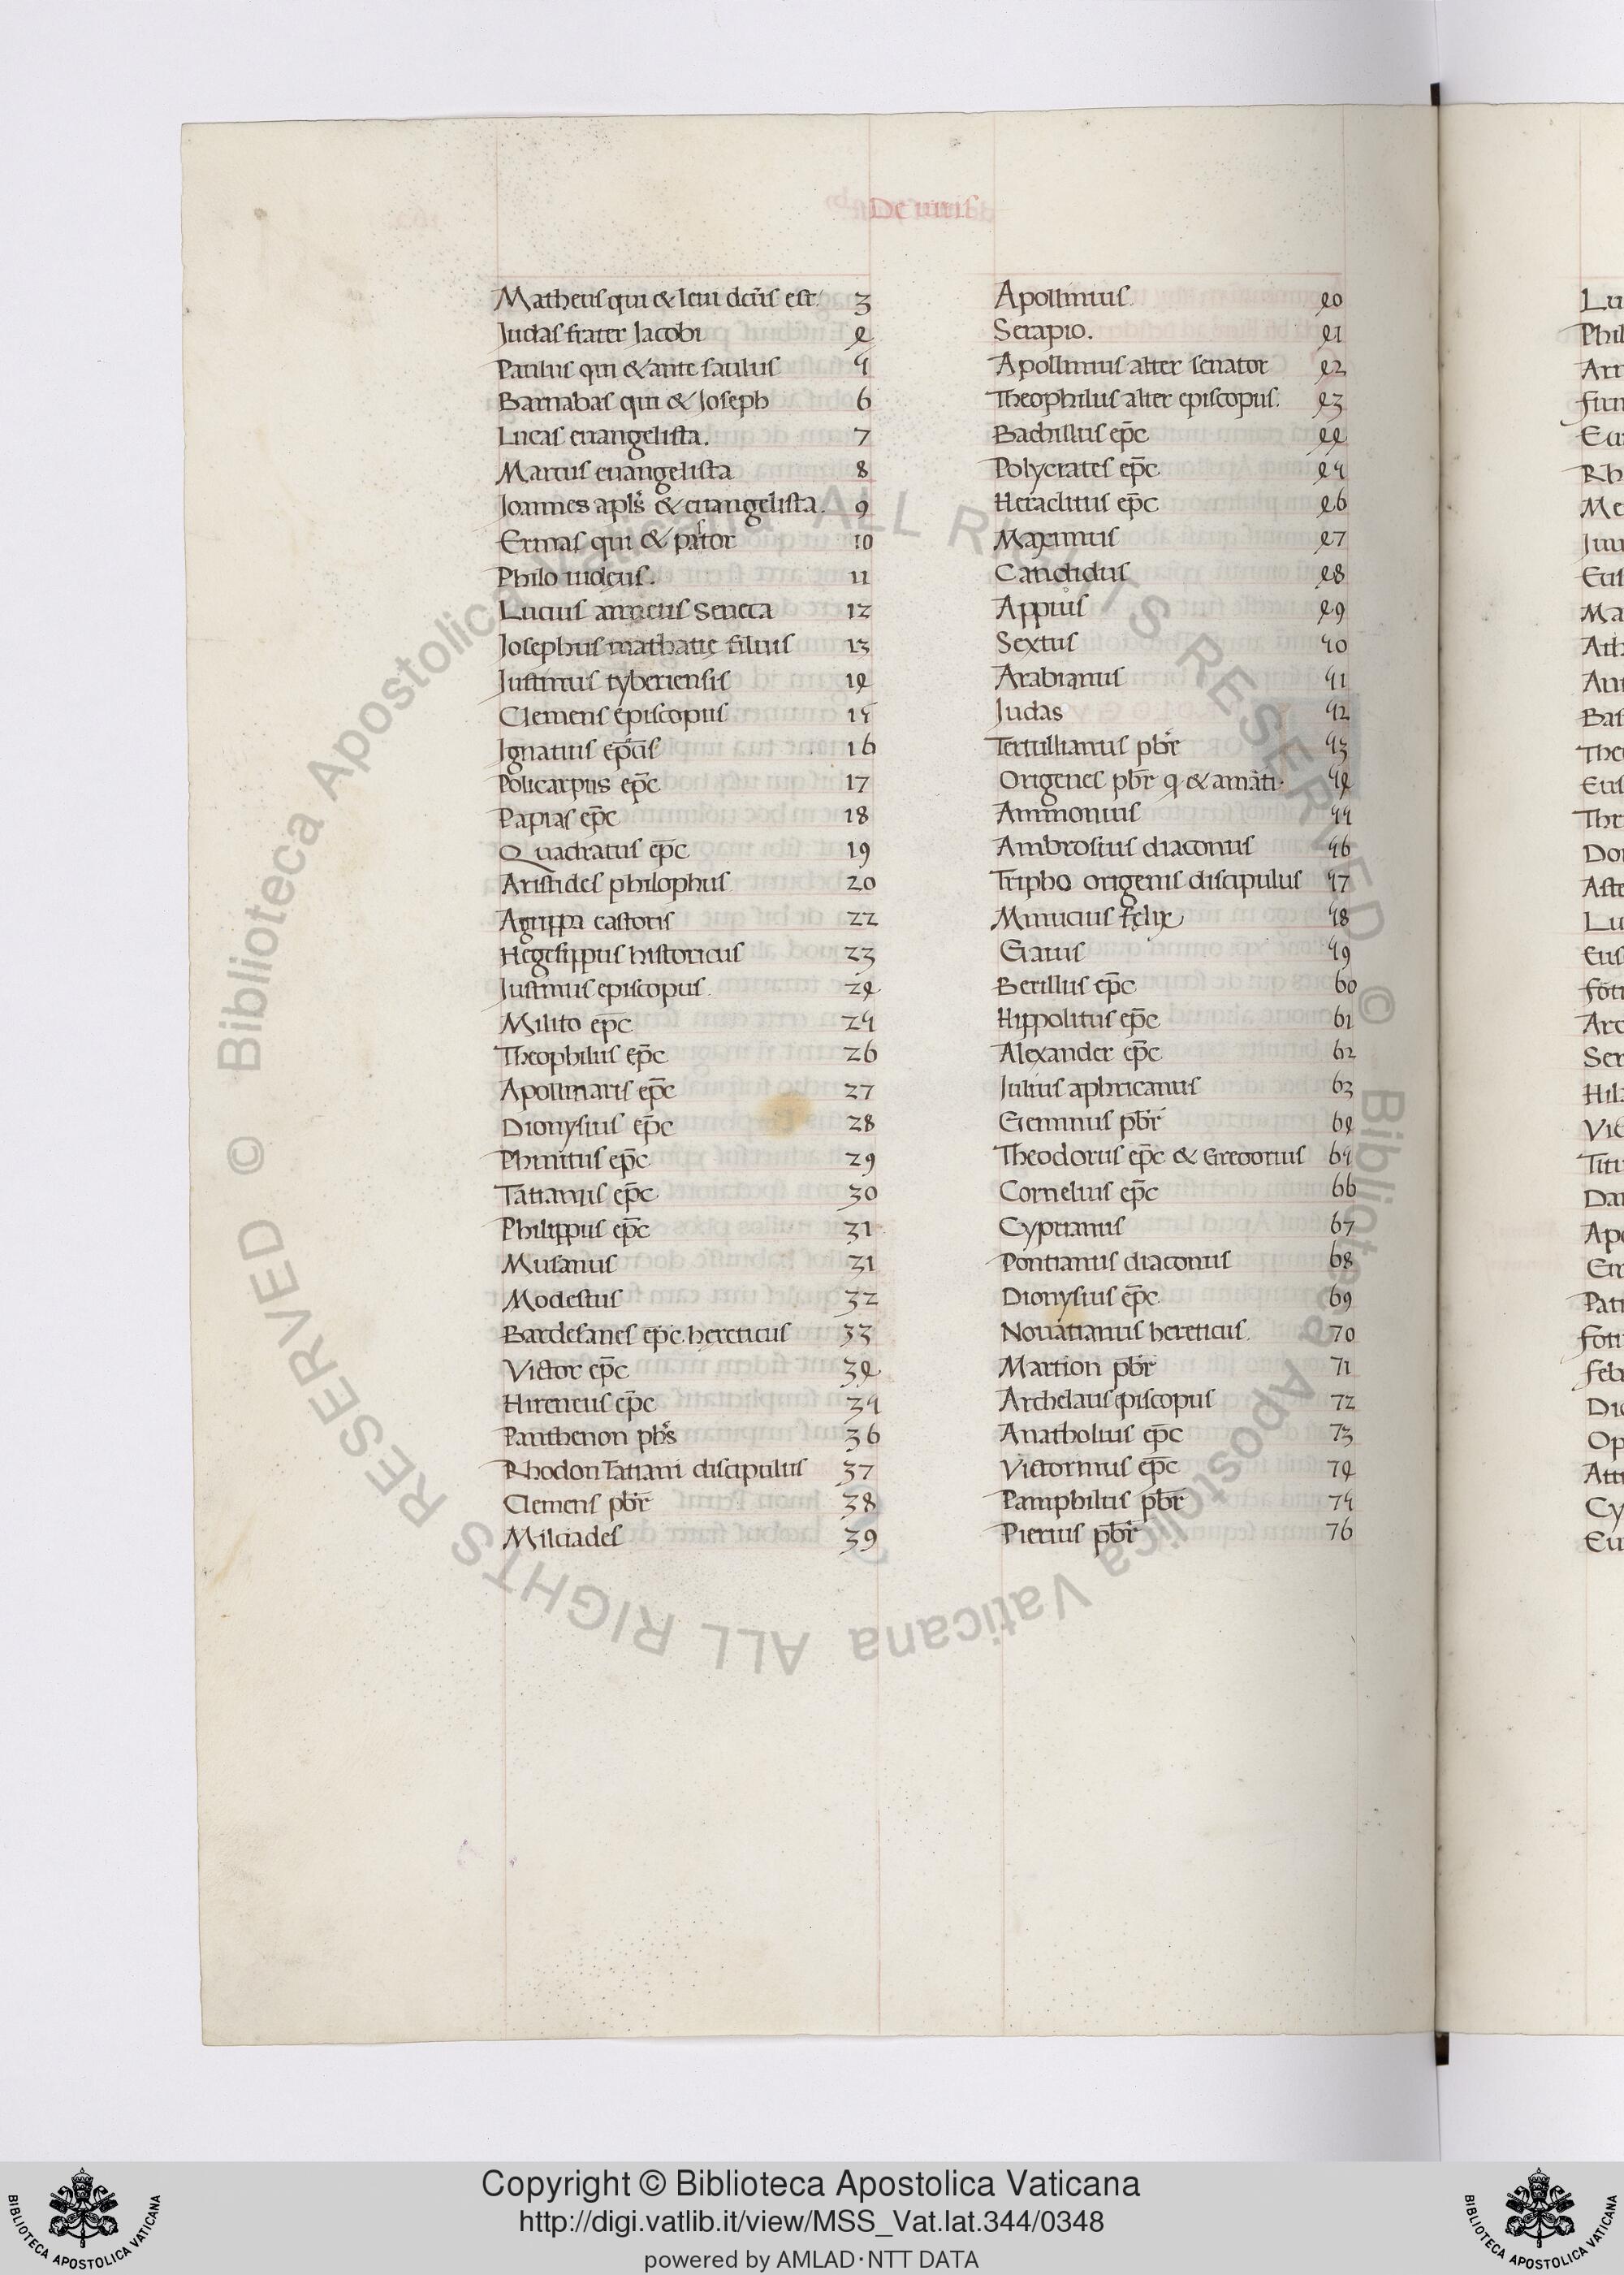 De uiris
Matheus qui & leui dcũs est. 3
Judas frater Jacobi 4
Paulus qui & ante saulus 5
Barnabas qui & Joseph 6
Lucas euangelista. 7
Marcus euangelista 8
Joannes apls & euangelista. 9
Ermas qui & pastor 10
Philo iudeus. 11
Lucius anneus Seneca 12
Josephus mathatie filius 13
Justinus tyberiensis 14
Clemens episcopus 15
Ignatius epcũs 16
Policarpus ep̄c 17
Papias ep̄c 18
Quadratus ep̄c 19
Aristides philophus 20
Agrippa castoris 22
Hegesippus historicus 23
Justinus episcopus 24
Milito ep̄c 25
Theophilus ep̄c 26
Apollinaris ep̄c 27
Dionysius ep̄c 28
Phinitus ep̄c 29
Tatianus ep̄c 30
Philippus ep̄c 31
Musanus 31
Modestus 32
Bardesanes ep̄c hereticus 33
Victor ep̄c 34
Hireneus ep̄c 35
Panthenon pbs̄ 36
Rhodon Tatiani discipulus 37
Clemens pbr̄ 38
Milciades 39
Apollinius. 40
Serapio. 41
Apollinius alter senator 42
Theophilus alter episcopus. 43
Bachillus ep̄c 44
Polycrates ep̄c 45
Heraclitus ep̄c 46
Maximus 47
Candidus 48
Appius 49
Sextus 50
Arabianus 51
Judas 52
Tertullianus pbr̄ 53
Origenes pbr̄ q & amãti. 54
Ammonius 55
Ambrosius diaconus 56
Tripho origenis discipulus 57
Minucius felix 58
Gaius 59
Berillus ep̄c 60
Hippolitus ep̄c 61
Alexander ep̄c 62
Julius aphricanus 63
Geminus pbr̄ 64
Theodorus ep̄c & Gregorius 65
Cornelius ep̄c 66
Cyprianus 67
Pontianus diaconus 68
Dionysius ep̄c 69
Nouatianus hereticus. 70
Martion pbr̄ 71
Archelaus episcopus 72
Anatholius ep̄c 73
Victorinus ep̄c 74
Pamphilus pbr̄ 75
Pierius pbr̄ 76
© Biblioteca Apostolica Vaticana ALL RIGHTS RESERVED
© Biblioteca Apostolica Vaticana ALL RIGHTS RESERVED
Copyright © Biblioteca Apostolica Vaticana
http://digi.vatlib.it/view/MSS_Vat.lat.344/0348
powered by AMLAD·NTT DATA
BIBLIOTECA APOSTOLICA VATICANA
BIBLIOTECA APOSTOLICA VATICANA